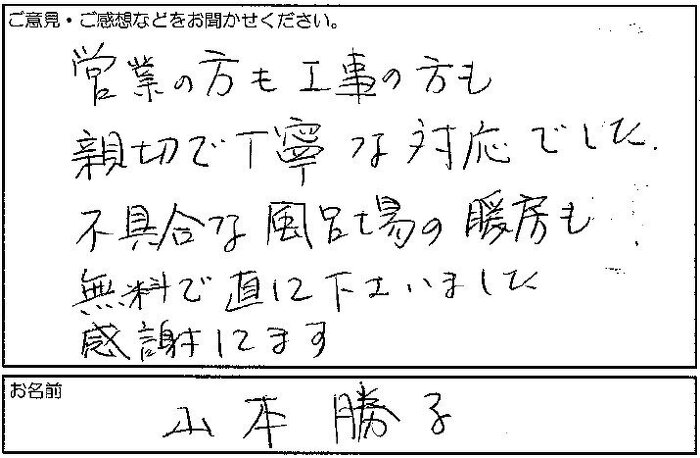 ご意見・ご感想などをお聞かせください。
営業の方も工事の方も
親切で丁寧な対応でした.
不具合な風呂場の暖房も
無料で直して下さいました
感謝してます
お名前
山本 勝子